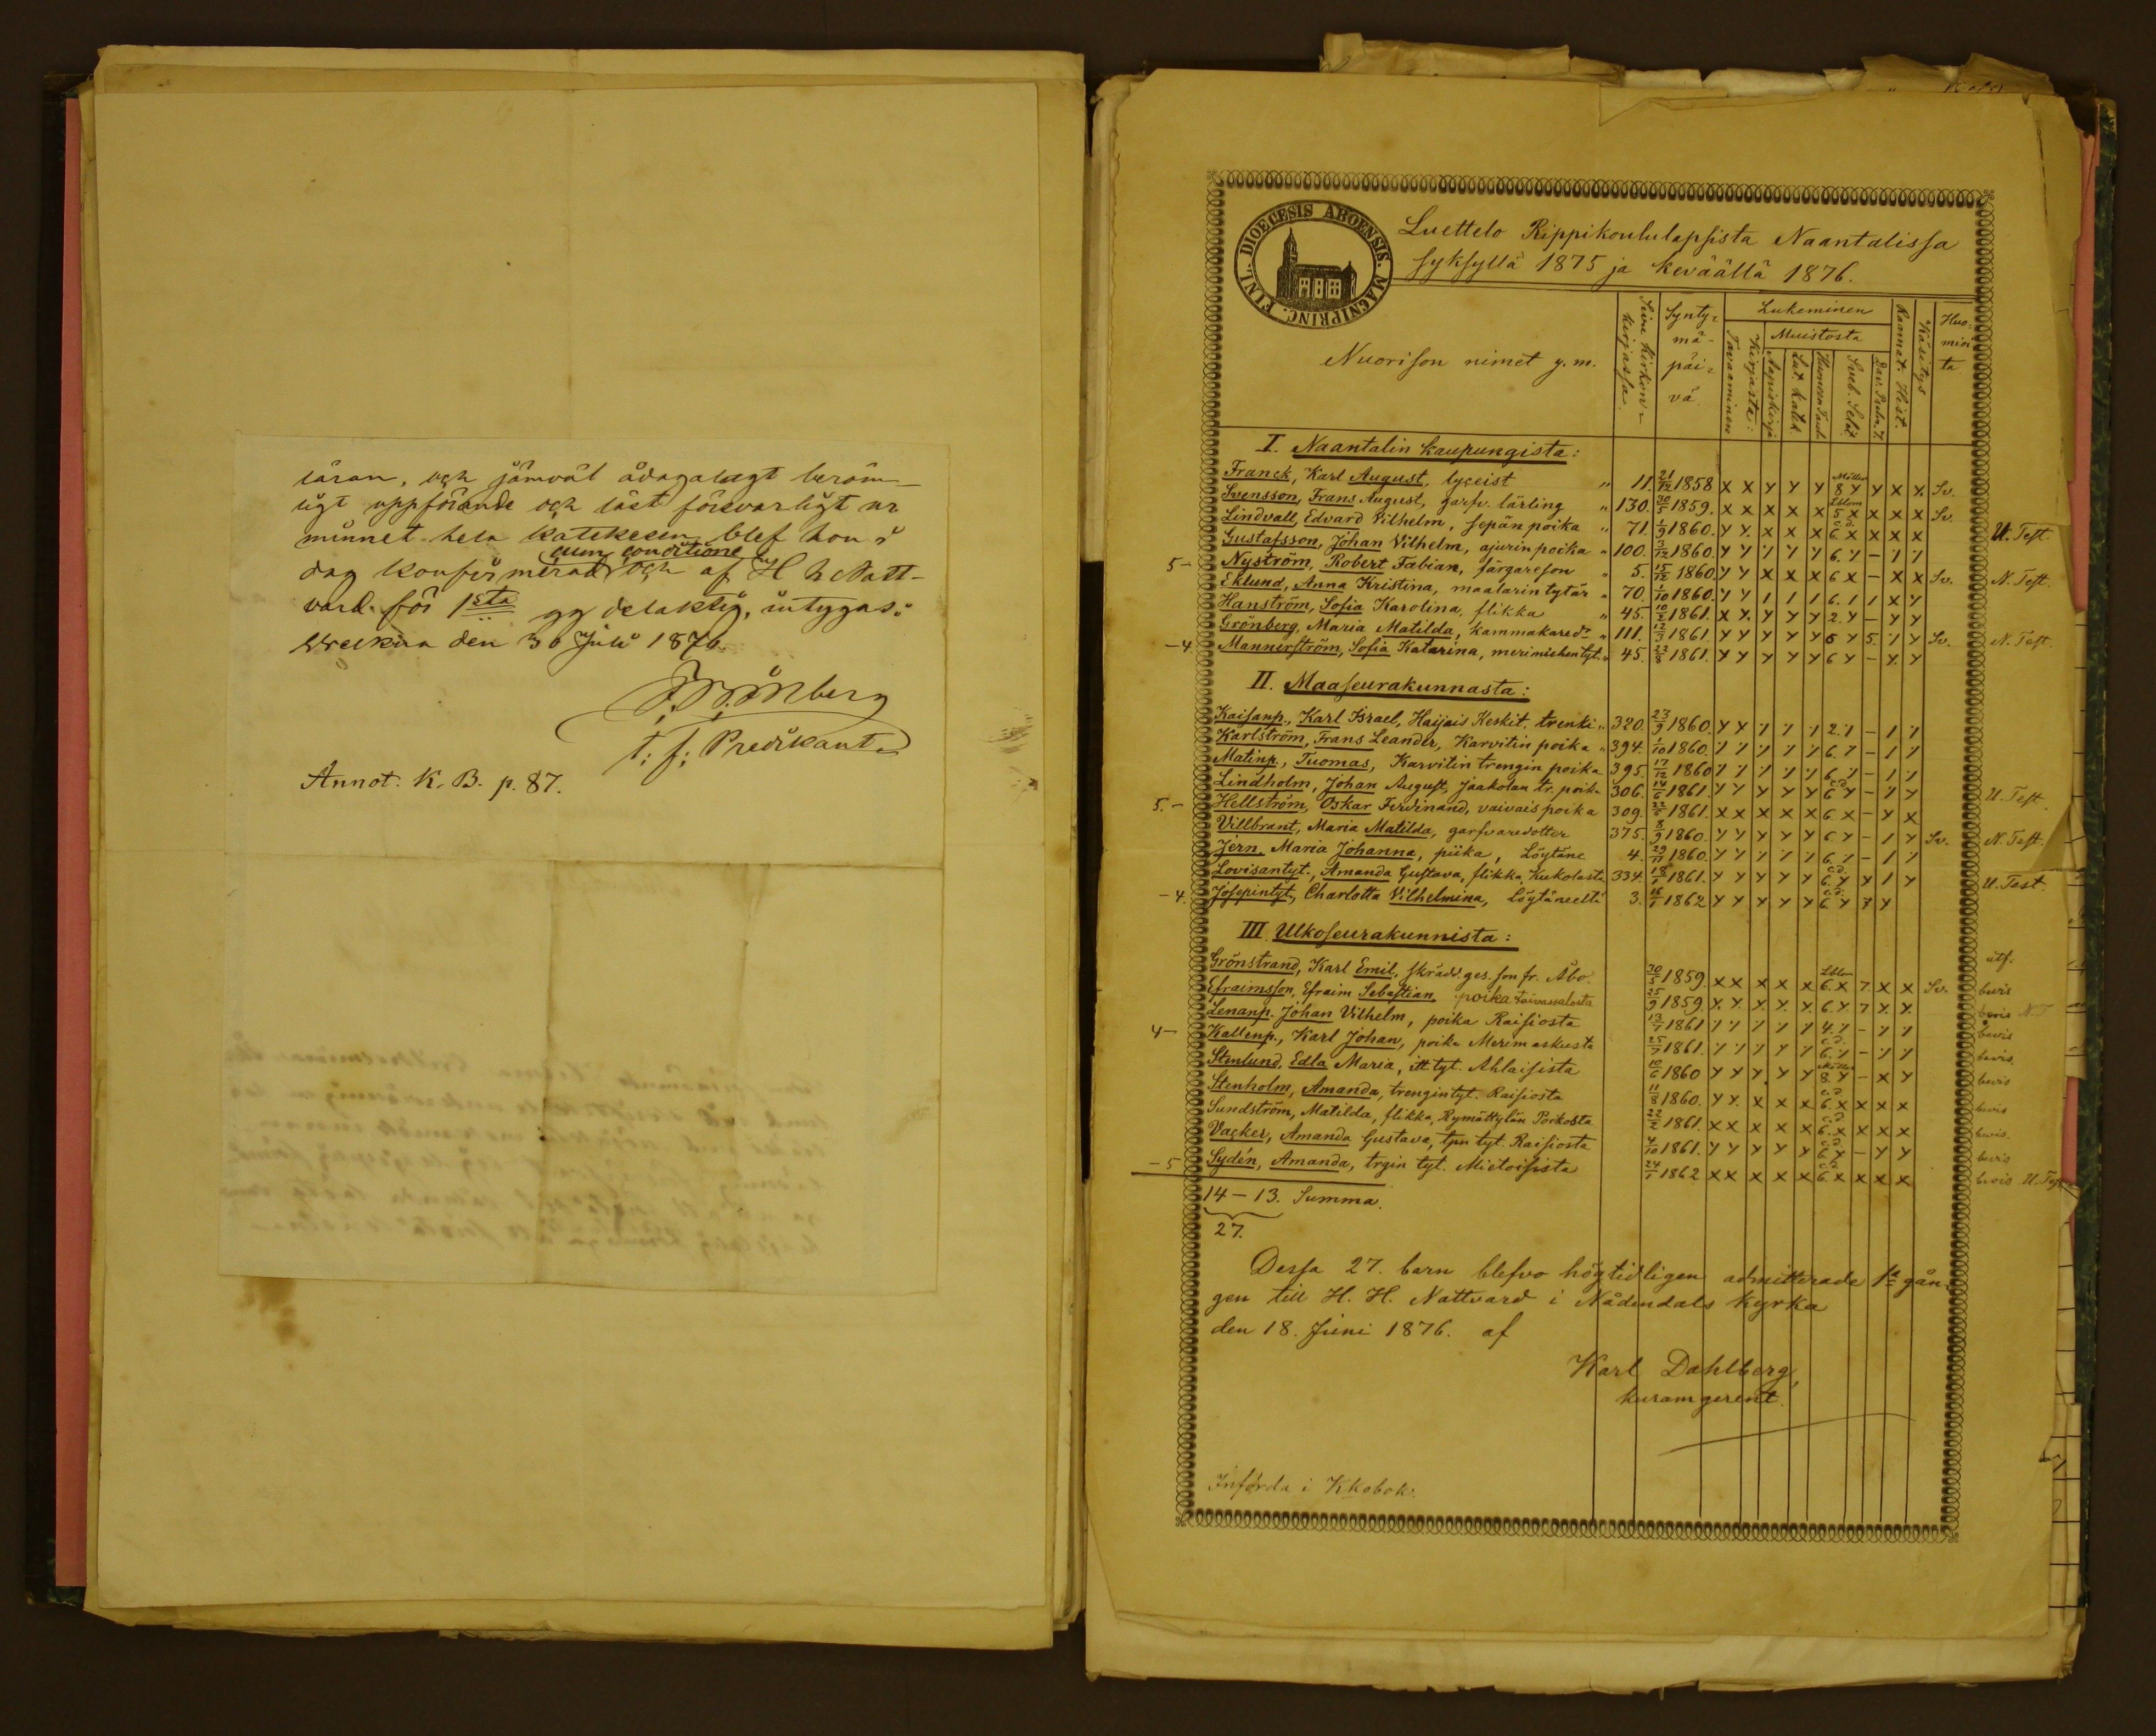 läran, och jämväl ådagalagt beröm-
ligt uppförande och läst försvarligt ur
minnet hela katekesen blef hon i
cum conditione
dag konfirmerad och af H h Natt-
vard för 1sta gg delaktig, intygas:
den 30 Juli 1876.
t. f. Predikant
Annot. K. B. p. 87.
FINL. DIOECESIS ABOENSIS. MAGNIPRINC.
Luettelo Rippikoululapsista Naantalissa
syksyllä 1875 ja keväällä 1876.
Nuorison nimet y.m.
Sivu kirkon-kirjassa
Synty-mä-päi-vä
Lukeminen
Tavaaminen
Kirjasta
Muistosta
Aapiskirja
Lut. Katek.
Huoneen Taulu
Sveb. Selit.
Dav. Psalm. 7.
Raamat. Hist.
Käsitys
Huo-mio-ta
I. Naantalin kaupungista:
Franck, Karl August, lyceist " 11. 21/12 1858 x x y y y Möller 8 y y x x. Sv.
Svensson, Frans August, garfv. lärling " 130. 30/5 1859. x x x x x 5 x x x x Sv.
Lindvall, Edvard Vilhelm, sepän poika " 71. 1/9 1860. y y. x x x c.d. 6 x x x x U. Test.
Gustafsson, Johan Vilhelm, ajurin poika " 100. 3/12 1860. y y y y y 6. y - y y
5- Nyström, Robert Fabian, färgareson " 5. 15/12 1860. y y x x x 6 x - x x Sv. N. Test.
Eklund, Anna Kristina, maalarin tytär " 70. 1/10 1860. y y 1 1 1 6. 1 1 x y
Hanström, Sofia Karolina, flikka " 45. 10/2 1861. x x. y y y 2. y - y y
Grönberg, Maria Matilda, kammakaredr " 111. 12/3 1861. y y y y y 5 y 5. y y Sv. N. Test.
-4. Mannerström, Sofia Katarina, merimiehen tyt. " 45. 23/8 1861. y y y y y 6 y - y. y
II. Maaseurakunnasta:
Kaisanp., Karl Israel, Haijais Keskit. trenki " 320. 23/9 1860. y y y y y 2. y - 1 y
Karlström, Frans Leander, Karvitin poika " 394. 1/10 1860. y y y y y 6. 7 - 1 y
Matinp., Tuomas, Karvitin trengin poika 395. 17/12 1860 y y y y y 6. y - 1 y
Lindholm, Johan August, Jaakolan tr. poika 306. 14/6 1861. y y y y y c.d. 6 y - y y U. Test.
5.- Hellström, Oskar Ferdinand, vaivais poika 309. 22/5 1861. x x x x x 6 x - y x
Villbrant, Maria Matilda, garfvaredotter 375. 8/9 1860. y y y y y 6 y - 1 y Sv. N. Test.
Jern, Maria Johanna, piika, Löytäne 4. 29/11 1860. y y y y y 6. y - 1 y
Lovisantyt., Amanda Gustava, flikka Kukolasta 334. 18/1 1861. y y y y y c.d. 6. y y 1 y U. Test.
-4. Josepintyt., Charlotta Vilhelmina, Löytäneeltä 3. 16/1 1862 y y y y y c.d. 6. y 7 y
III. Ulkoseurakunnista:
Grönstrand, Karl Emil, skrädd. ges. son fr. Åbo. 30/5 1859. x x x x x 6. x 7 x x Sv. utf. bevis
Efraimsson, Efraim Sebastian, poika Taivassalosta 25/9 1859. y. y. y. y. y. 6. y 7 y. y. bevis N.T
Lenanp. Johan Vilhelm, poika Raisiosta 13/7 1861 y y y y y 4. y - y y bevis
4- Kallenp., Karl Johan, poika Merimaskusta 25/7 1861. y y y y y c.d. 6. y - y y bevis
Stenlund, Edla Maria, itt. tyt. Ahlaisista 10/6 1860 y y y y y Möller 8. y - x y bevis
Stenholm, Amanda, trengintyt. Raisiosta 11/8 1860. y y. x x x c.d. 6. x x x x bevis
Sundström, Matilda, flikka, Rymättylän Poikosta 22/2 1861. x x x x x c.d. 6. x x x x bevis.
Vacker, Amanda Gustava, tpn tyt. Raisiosta 4/10 1861. y y y y y c.d. 6 y - y y bevis
-5 Sydén, Amanda, trgin tyt. Mietoisista 24/1 1862 x x x x x c.d. 6. x x x x bevis U. Test
14 - 13. Summa.
27.
Dessa 27. barn blefvo högtidligen admitterade 1a gån-
gen till H. H. Nattvard i Nådendals kyrka
den 18. Juni 1876. af
Karl Dahlberg,
kuramgerent.
Införda i Kkobok.